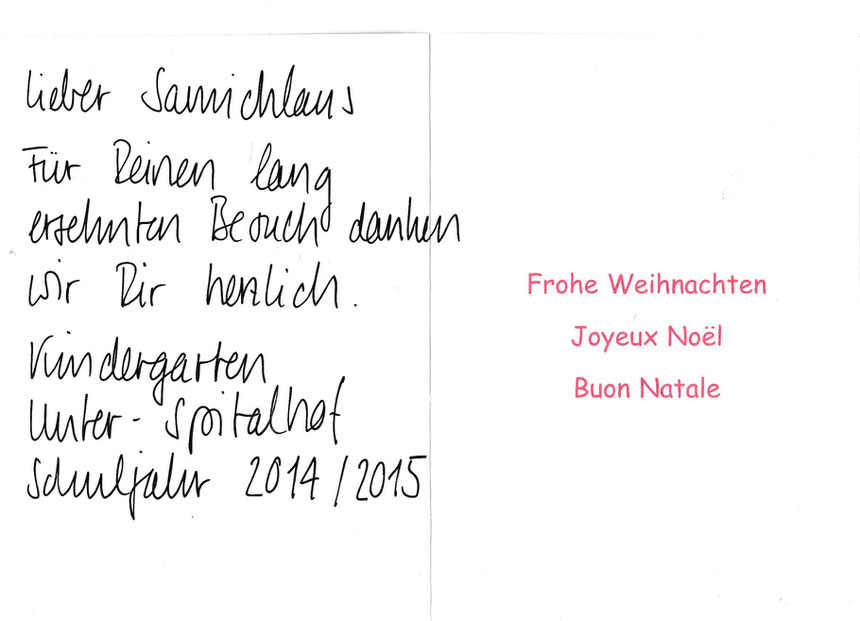 Lieber Samichlaus
Für Deinen lang
ersehnten Besuch danken
wir Dir herzlich.
Kindergarten
Unter-Spitalhof
Schuljahr 2014/2015
Frohe Weihnachten
Joyeux Noël
Buon Natale